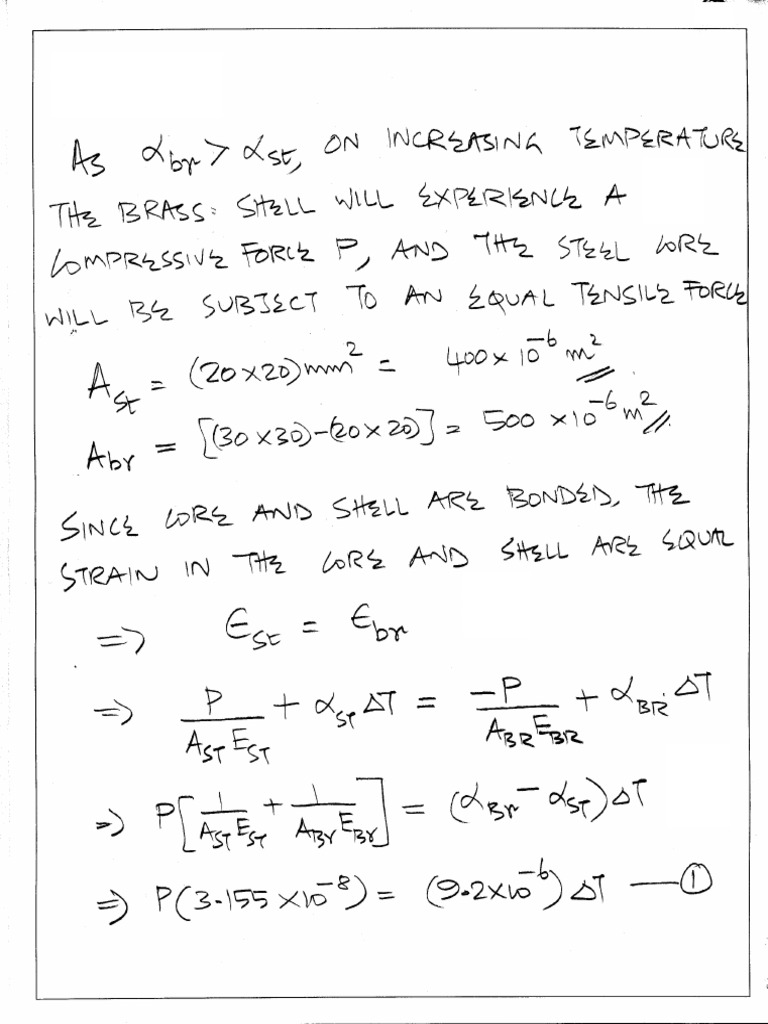 As αbr > αst, ON INCREASING TEMPERATURE
THE BRASS SHELL WILL EXPERIENCE A
COMPRESSIVE FORCE P, AND THE STEEL CORE
WILL BE SUBJECT TO AN EQUAL TENSILE FORCE
Ast = (20×20)mm² = 400×10⁻⁶ m²
Abr = [(30×30)-(20×20)] = 500×10⁻⁶ m²
SINCE CORE AND SHELL ARE BONDED, THE
STRAIN IN THE CORE AND SHELL ARE EQUAL
=> Est = Ebr
=> P/(AST EST) + αST ΔT = -P/(ABR EBR) + αBR ΔT
=> P[1/(AST EST) + 1/(ABr EBr)] = (αBr - αST)ΔT
=> P(3.155×10⁻⁸) = (9.2×10⁻⁶)ΔT —①